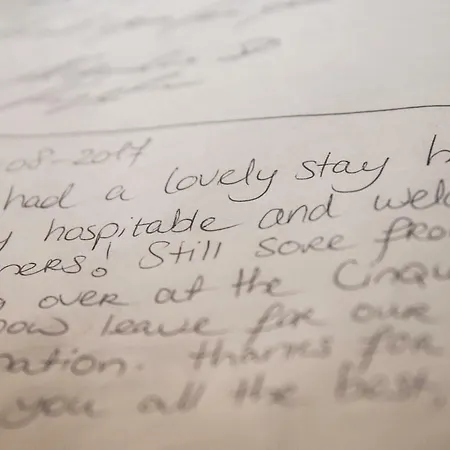 08-2017
had a lovely stay h
y hospitable and welc
ners! Still sore fro
g over at the Cinqu
now leave for our
nation. thanks for
you all the best,